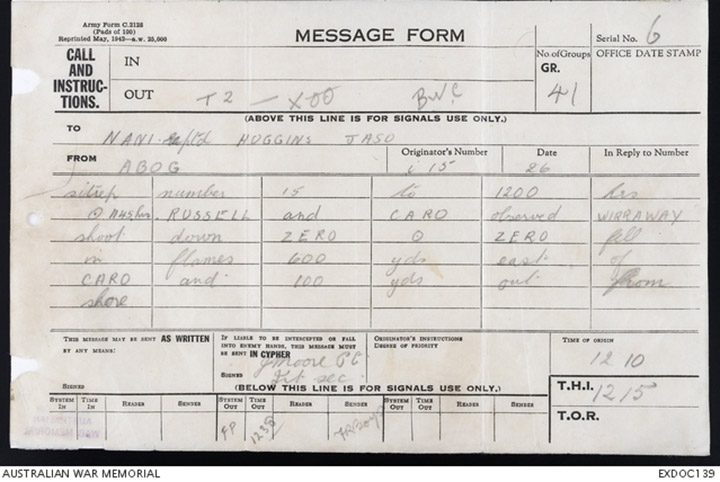 Army Form C.2128
(Pads of 100)
Reprinted May, 1942—a.w. 25,000
MESSAGE FORM
Serial No. 6
CALL AND INSTRUCTIONS.
IN
OUT T2 — XOO BVC
No. of Groups
GR.
41
OFFICE DATE STAMP
(ABOVE THIS LINE IS FOR SIGNALS USE ONLY.)
TO NANI reptd HUGGINS JASO
FROM ABOG
Originator's Number
i 15
Date
26
In Reply to Number
sitrep number 15 to 1200 hrs
RUSSELL and CARO observed WIRRAWAY
shoot down ZERO O ZERO fell
in flames 600 yds east of
CARO and 100 yds out from
shore
THIS MESSAGE MAY BE SENT AS WRITTEN
BY ANY MEANS:
SIGNED
IF LIABLE TO BE INTERCEPTED OR FALL
INTO ENEMY HANDS, THIS MESSAGE MUST
BE SENT IN CYPHER
SIGNED J Moore
Int sec
ORIGINATOR'S INSTRUCTIONS
DEGREE OF PRIORITY
TIME OF ORIGIN
12 10
(BELOW THIS LINE IS FOR SIGNALS USE ONLY.)
T.H.I. 1215
T.O.R.
SYSTEM IN TIME IN READER SENDER SYSTEM OUT TIME OUT READER SENDER SYSTEM OUT TIME OUT READER SENDER
FP 1238
AUSTRALIAN WAR MEMORIAL
AUSTRALIAN WAR MEMORIAL EXDOC139